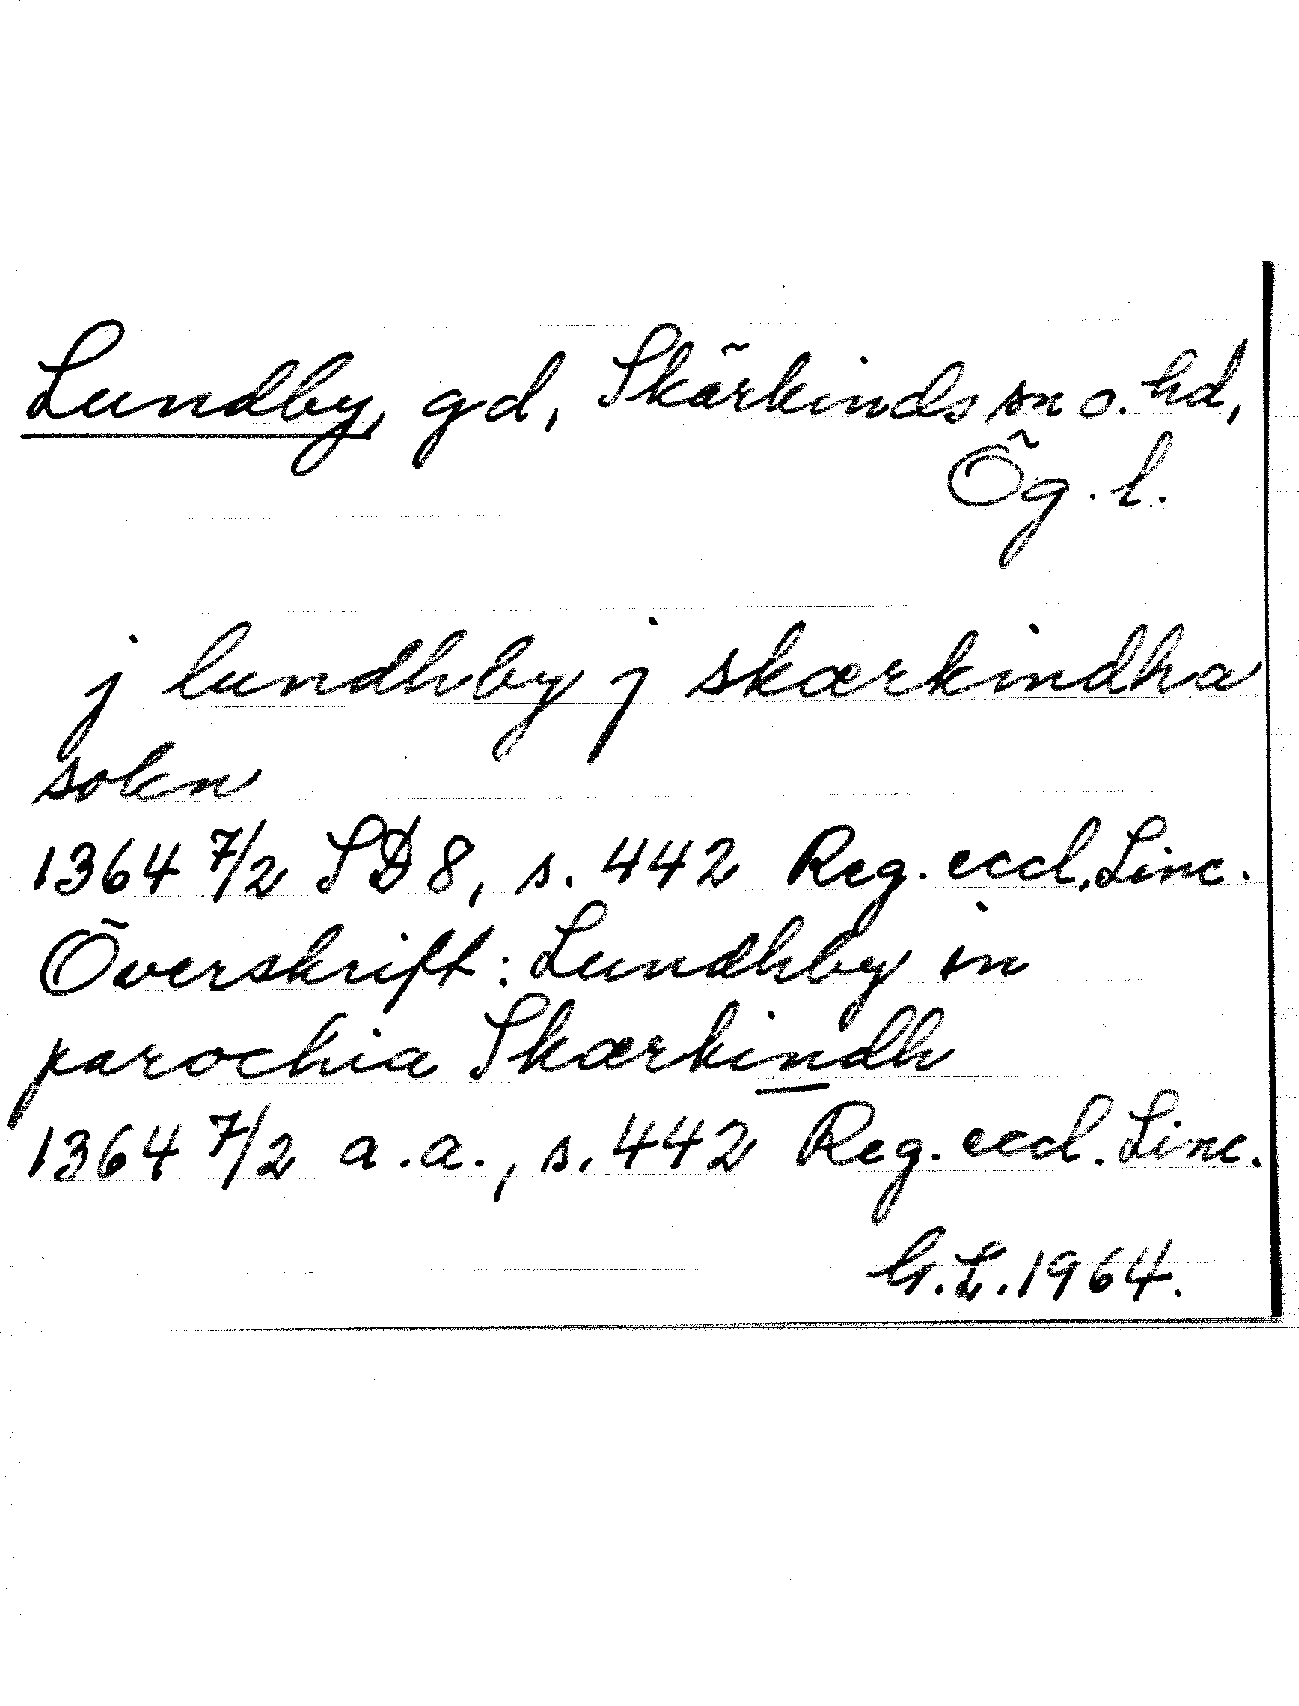 Lundby, gd, Skärkinds sn o. hd,
Ög. l.
j lundhby j skærkindha
sokn
1364 7/2 SD 8, s. 442 Reg. eccl. Linc.
Överskrift: Lundhby in
parochia Skærkindh
1364 7/2 a.a., s. 442 Reg. eccl. Linc.
G.L. 1964.